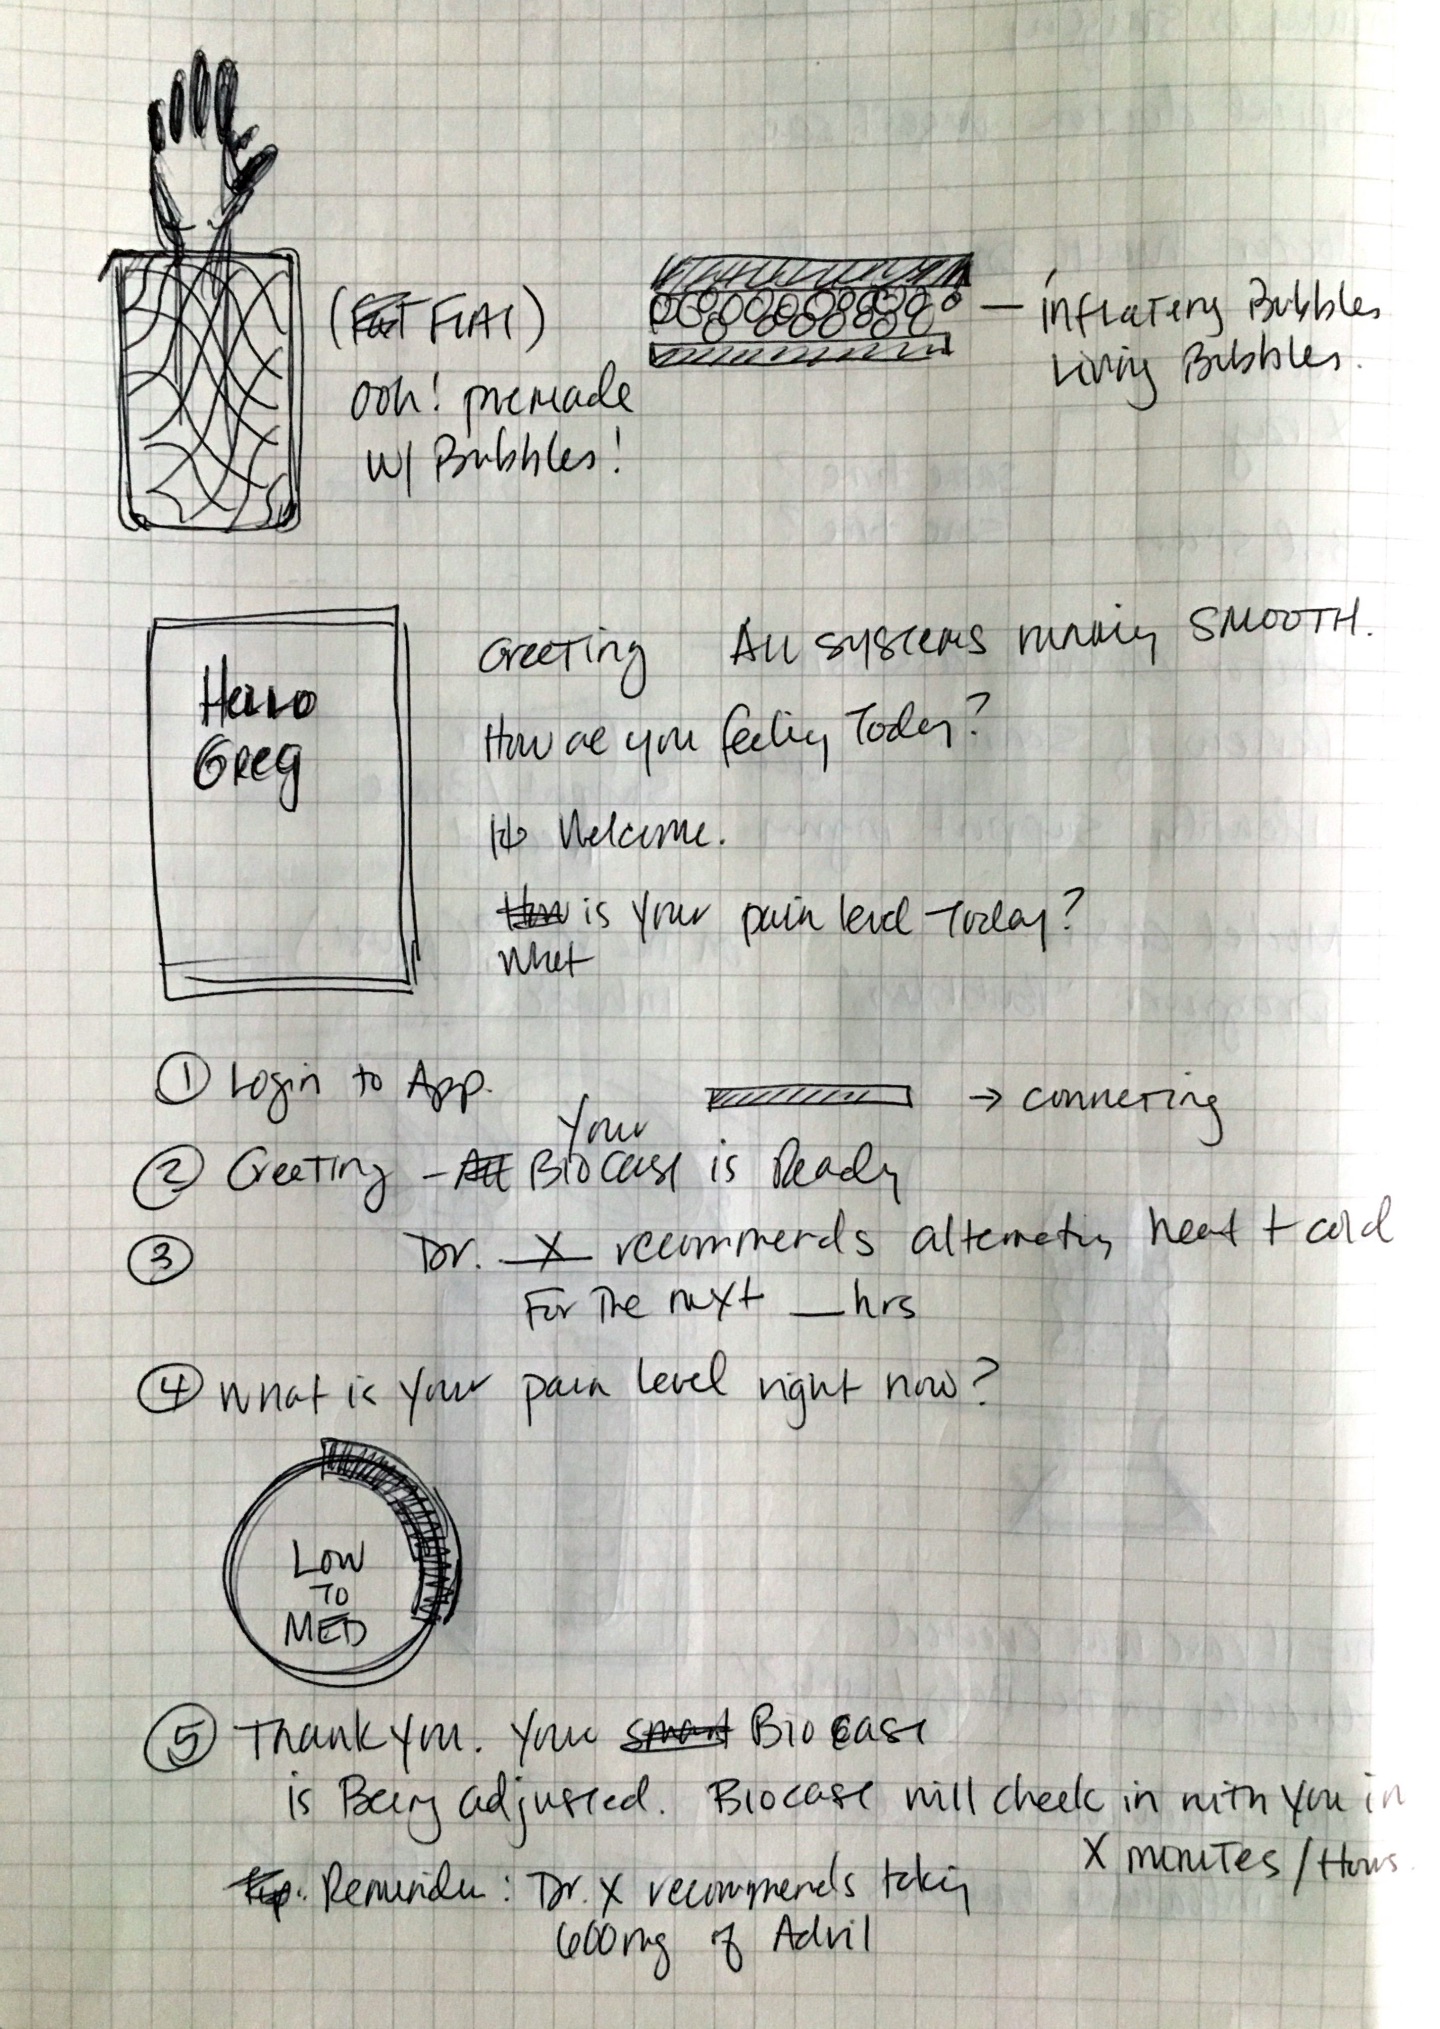 (Flat FLAT)
ooh! premade
w/ Bubbles!
— inflating Bubbles
Living Bubbles.
Hello
Greg
Greeting All systems running SMOOTH.
How are you feeling Today?
Welcome.
How is your pain level Today?
What
① Login to App.
→ connecting
Your
② Greeting - All BIOCASE is Ready
③ Dr. X recommends alternating heat + cold
For The next __ hrs
④ What is your pain level right now?
LOW
TO
MED
⑤ Thank you. Your smart BioCase
is Being adjusted. Biocase will check in with you in
X minutes / Hours.
Tip: Reminder: Dr. X recommends taking
600mg of Advil